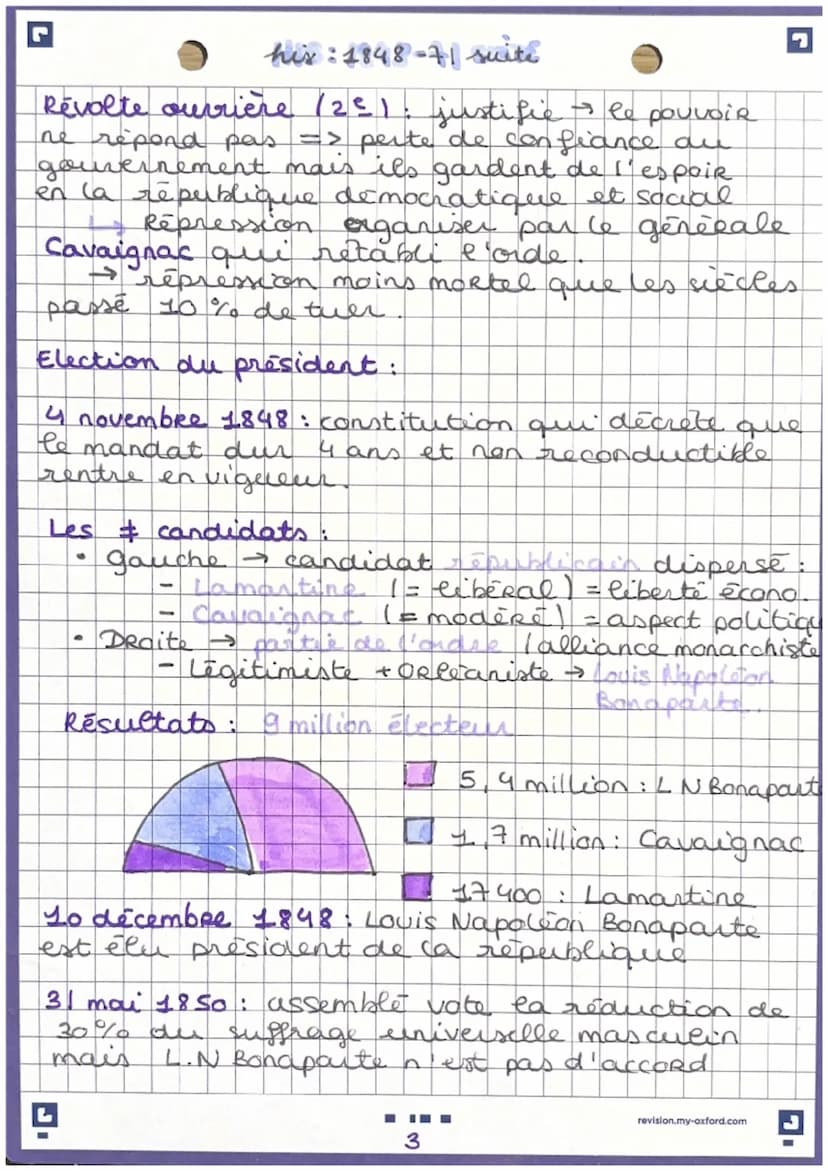 his : 1848-71 suite
Révolte ouvrière (2e) : justifié → le pouvoir
ne répond pas => perte de confiance du
gouvernement mais ils gardent de l'espoir
en la république démocratique et social
↳ Répression organiser par le générale
Cavaignac qui rétabli l'orde.
→ répression moins mortel que les siècles
passé 10% de tuer.
Election du président :
4 novembre 1848 : constitution qui décrète que
le mandat dur 4 ans et non reconductible
rentre en vigueur.
Les ≠ candidats :
• gauche → candidat républicain dispersé :
- Lamartine (= libéral) = liberté écono.
- Cavaignac (= modéré) = aspect politiqu
• Droite → partie de l'ordre (alliance monarchiste
- Légitimiste + Orléaniste → Louis Napoléon
Bonaparte.
Résultats : 9 million électeur
5,4 million : L N Bonapart
1,7 million : Cavaignac
17400 : Lamartine
10 décembre 1848 : Louis Napoléon Bonaparte
est élu président de la république
31 mai 1850 : assemblé vote la réduction de
30% du suffrage universelle masculin
mais L.N Bonaparte n'est pas d'accord
revision.my-oxford.com
3